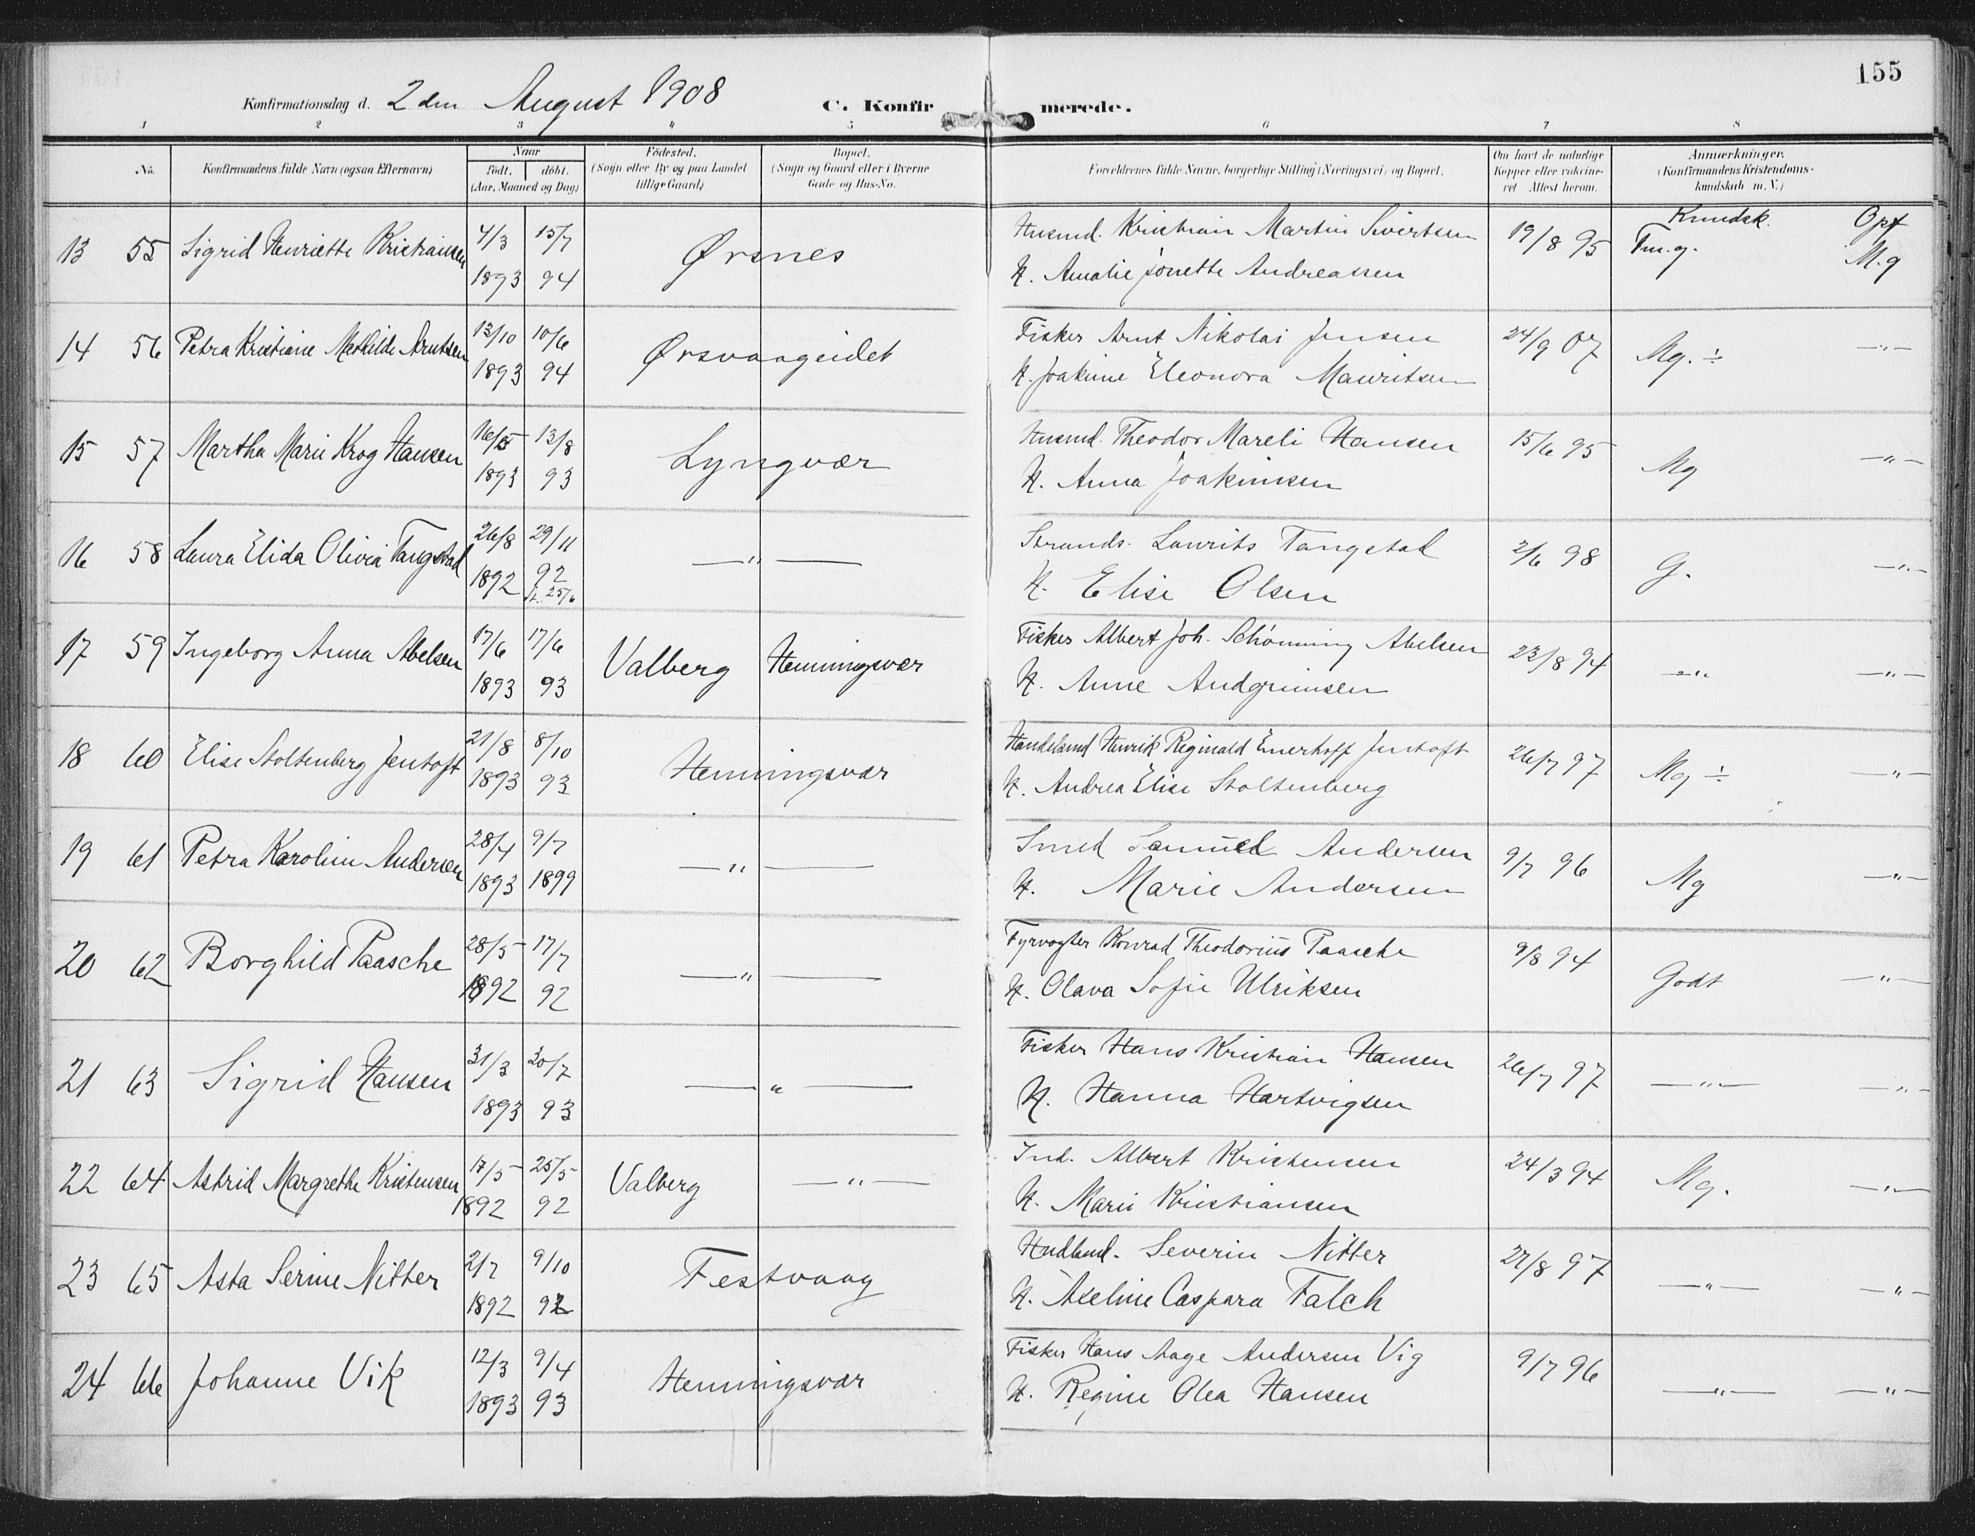 155
Konfirmationsdag d. 2 den August 1908 C. Konfirmerede.
1 2 3 4 5 6 7 8
No. Konfirmandens fulde Navn (ogsaa Efternavn) Naar født. døbt. (Aar, Maaned og Dag) Fødested. (Sogn eller By og paa Landet tillige Gaard) Bopæl. (Sogn og Gaard eller i Byerne Gade og Hus-No. Forældrenes fulde Navne, borgerlige Stilling (Næringsvei) og Bopæl. Om havt de naturlige Kopper eller vakcineret. Attest herom. Anmærkninger. (Konfirmandens Kristendomskundskab m. V.)
Kundsk. Opf
13 55 Sigrid Henriette Kristiansen 4/3 1893 15/7 94 Ørsnes Husmd. Kristian Martin Sivertsen 19/8 95 Tm.g. M.g
H. Amalie Jonette Andreassen
14 56 Petra Kristiane Mathilde Arntsen 13/10 1893 10/6 94 Ørsvaageidet Fisker Arnt Nikolai Jensen 24/9 07 Mg. ÷ —"—
H. Joakime Eleonora Mauritsen
15 57 Martha Marie Krog Hansen 16/5 1893 13/8 93 Lyngvær Husmd. Theodor Mareli Hansen 15/6 95 Mg —"—
H. Anna Joakimsen
16 58 Laura Elida Olivia Tangstad 26/8 1892 29/11 92 25/6 —"— Strands. Laurits Tangstad 2/6 98 G. —"—
H. Elise Olsen
17 59 Ingeborg Anna Abelsen 17/6 1893 17/6 93 Valberg Henningsvær Fisker Albert Joh. Schønning Abelsen 23/8 94 —"— —"—
H. Anne Andgrimsen
18 60 Elise Stoltenberg Jentoft 21/8 1893 8/10 93 Henningsvær Handelsmd Henrik Reginald Emerhoff Jentoft 26/7 97 Mg ÷ —"—
H. Andrea Elise Stoltenberg
19 61 Petra Karolin Andersen 28/4 1893 9/7 1899 —"— Smed Samuel Andersen 9/7 96 Mg —"—
H. Marie Andersen
20 62 Borghild Paasche 28/5 1892 17/7 92 —"— Fyrvogter Konrad Theodorius Paasche 9/8 94 Godt —"—
H. Olava Sofie Ulriksen
21 63 Sigrid Hansen 31/3 1893 30/7 93 —"— Fisker Hans Kristian Hansen 26/7 97 —"— —"—
H. Hanna Hartvigsen
22 64 Astrid Margrethe Kristensen 17/5 1892 25/5 92 Valberg —"— Ind. Albert Kristensen 24/3 94 Mg. —"—
H. Marie Kristiansen
23 65 Asta Serine Nitter 2/7 1892 9/10 92 Festvaag Severin Nitter 27/8 97 —"— —"—
H. Axeline Caspara Falch
24 66 Johanne Vik 12/3 1893 9/4 93 Henningsvær Fisker Hans Aage Andersen Vig 9/7 96 —"— —"—
H. Regine Olea Hansen